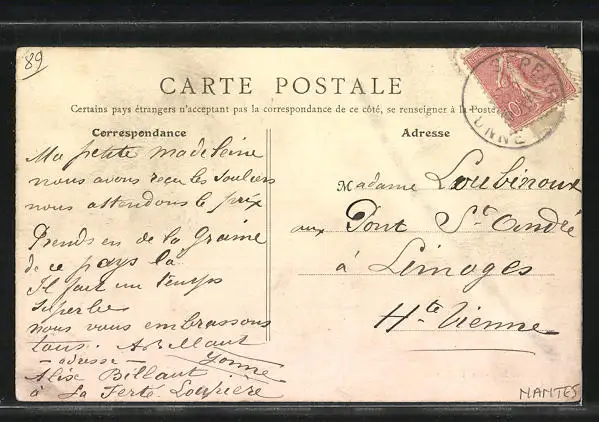 89
CARTE POSTALE
Certains pays étrangers n'acceptant pas la correspondance de ce côté, se renseigner à la Poste
Correspondance
Ma petite madeleine
nous avons reçu les souliers
nous attendons le prix
Prends en de la graine
de ce pays là
Il fait un temps
superbe
nous vous embrassons
tous. A Billaut
adresse
Yonne
Alix Billaut
à La Ferté Loupière
Adresse
Madame Loubinoux
aux Pont St André
à Limoges
Hte Vienne
YONNE
10
NANTES